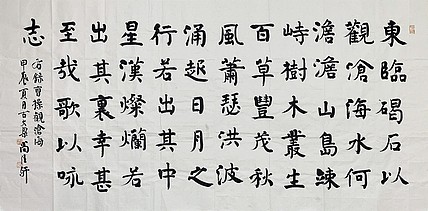 東臨碣石以
觀滄海水何
澹澹山島竦
峙樹木叢生
百草豐茂秋
風蕭瑟洪波
涌起日月之
行若出其中
星漢燦爛若
出其裏幸甚
至哉歌以咏
志
右錄曹操觀滄海
甲辰夏月